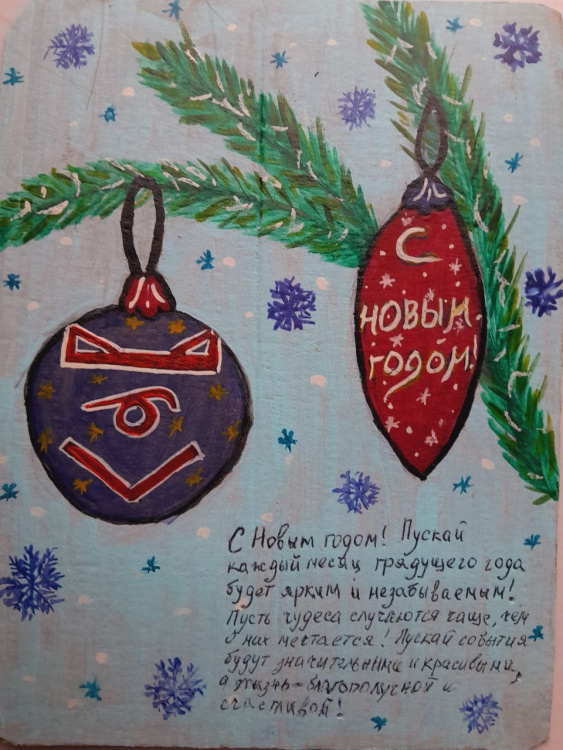 С
НОВЫМ
ГОДОМ!
С Новым годом! Пускай
каждый месяц грядущего года
будет ярким и незабываемым!
Пусть чудеса случаются чаще, чем
о них мечтается! Пускай события
будут значительными и красивыми,
а жизнь-благополучной и
счастливой!